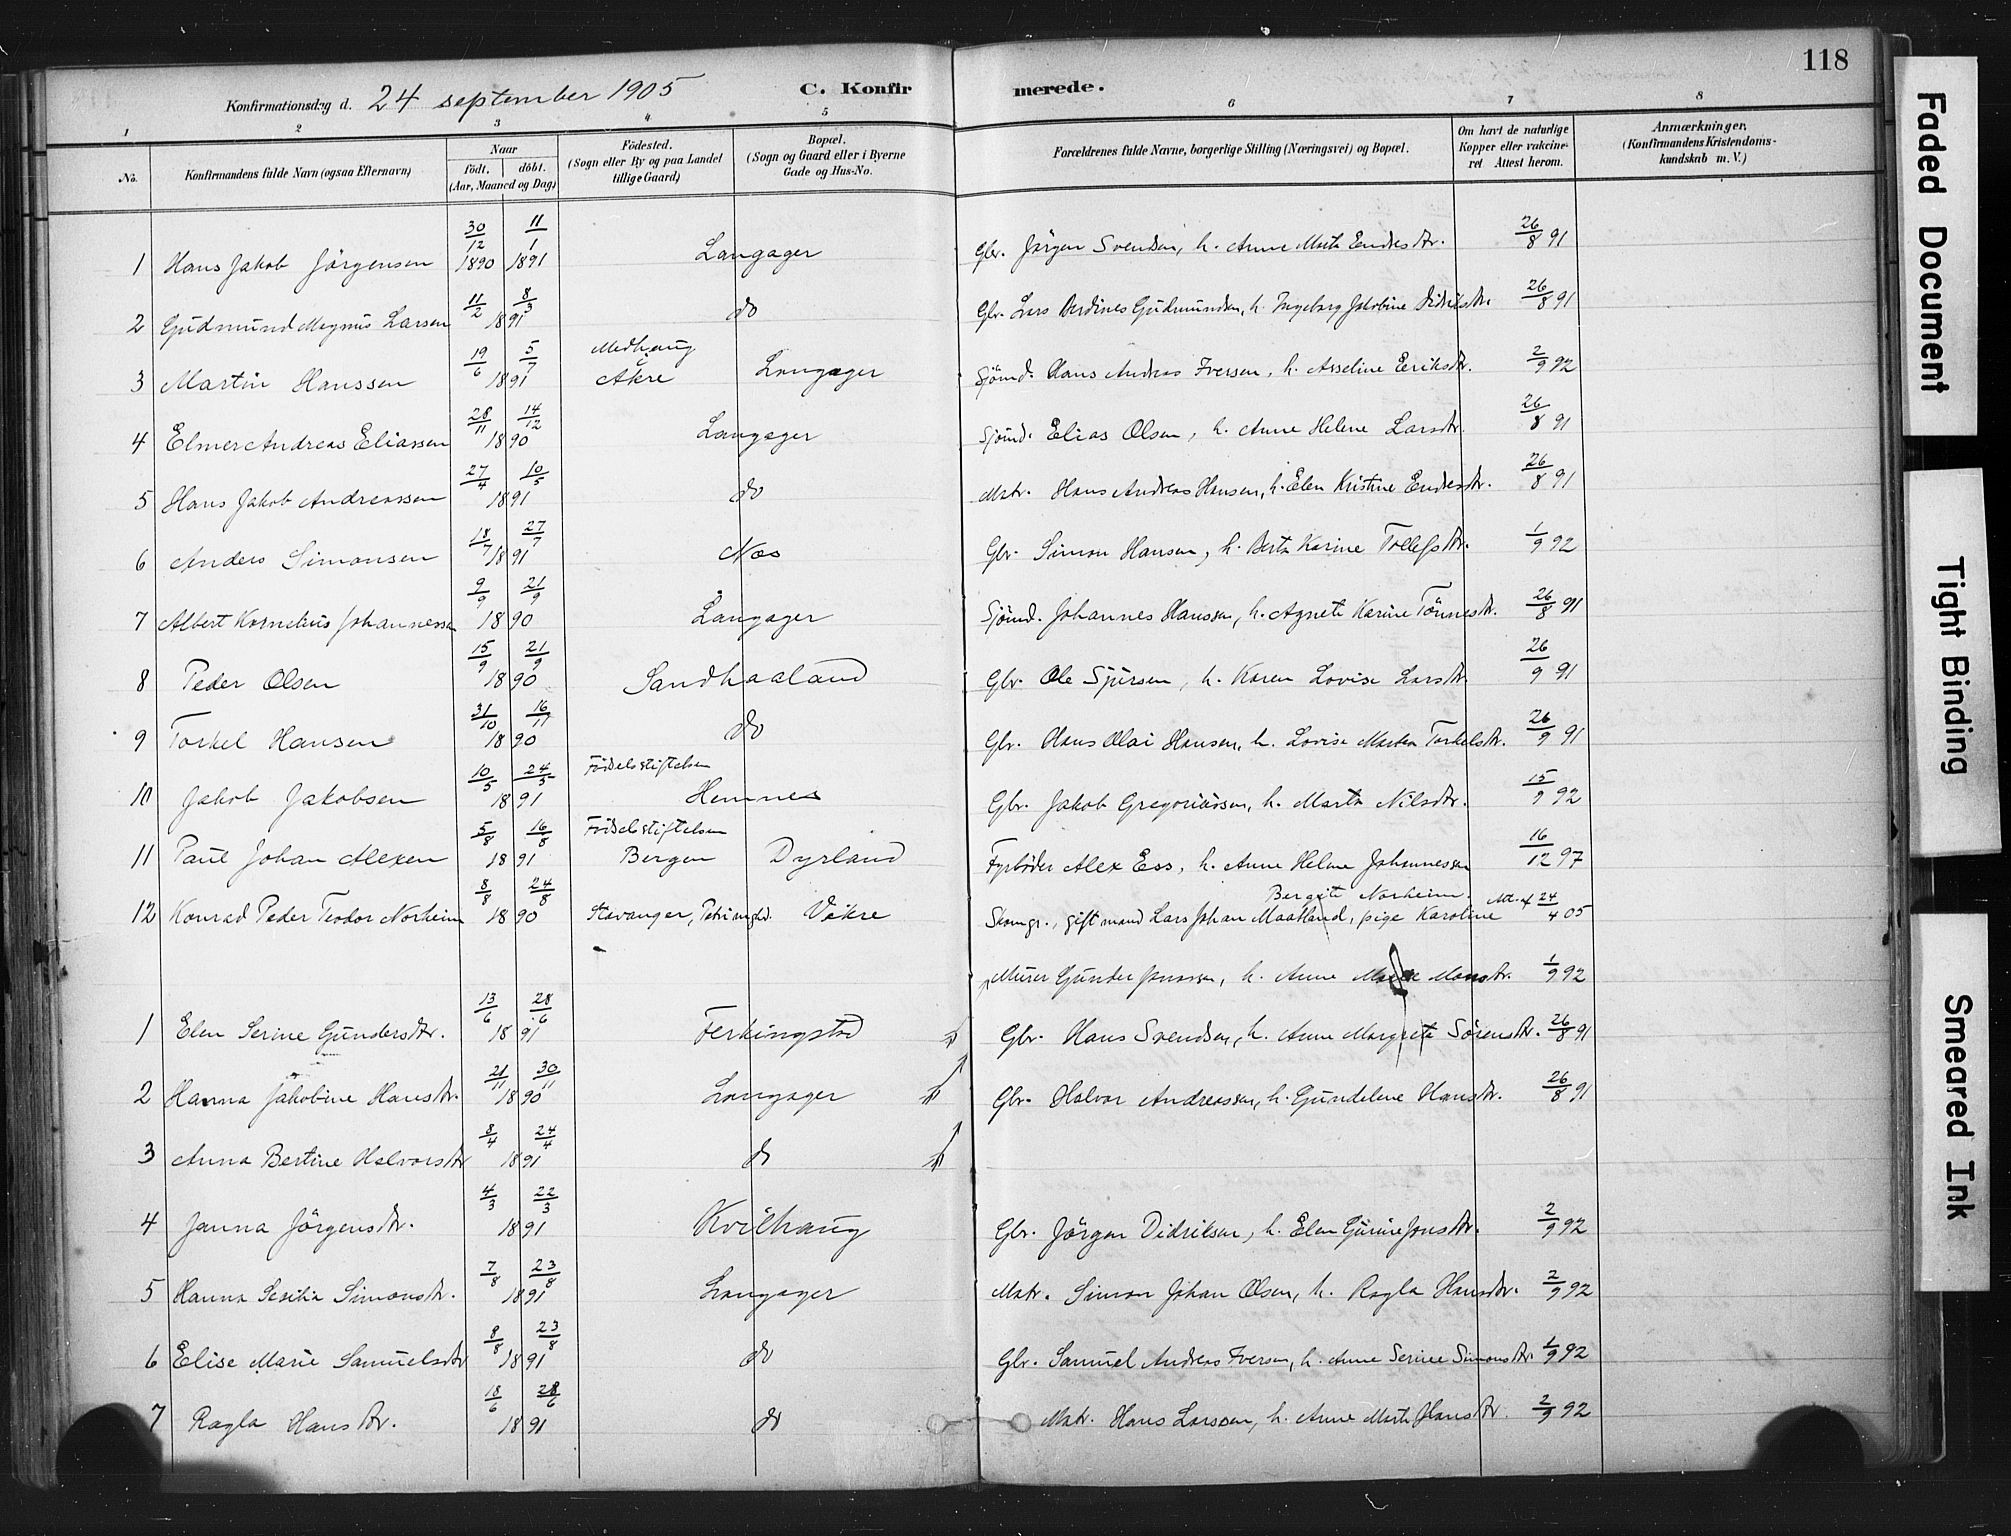 118
Konfirmationsdag d. 24 september 1905 C. Konfirmerede.
1 2 3 4 5 6 7 8
No. Konfirmandens fulde Navn (ogsaa Efternavn) Naar født. døbt. (Aar, Maaned og Dag) Fødested. (Sogn eller By og paa Landet tillige Gaard) Bopæl. (Sogn og Gaard eller i Byerne Gade og Hus-No. Forældrenes fulde Navne, borgerlige Stilling (Næringsvei) og Bopæl. Om havt de naturlige Kopper eller vaccineret Attest herom. Anmærkninger. (Konfirmandens Kristendomskundskab m. V.)
1 Hans Jakob Jörgensen 30/12 1890 11/1 1891 Langager Gbr. Jörgen Svendsen, h. Anne Marta Endresdtr. 26/8 91
2 Gudmund Magnus Larsen 11/2 8/3 1891 do Gbr. Lars Berdines Gudmundsen, h. Ingeborg Jakobine Didriksdtr. 26/8 91
3 Martin Hanssen 19/6 5/7 1891 Medhaug Åkre Langager Sjömd. Hans Andreas Iversen, h. Asseline Eriksdtr. 2/9 92
4 Elmer Andreas Eliassen 28/11 14/12 1890 Langager Sjömd. Elias Olsen, h. Anne Helene Larsdtr. 26/8 91
5 Hans Jakob Andreassen 27/4 10/5 1891 do Matr. Hans Andreas Hansen, h. Elen Kristine Endresdtr. 26/8 91
6 Anders Simonsen 18/7 27/7 1891 Næs Gbr. Simon Hansen, h. Berta Karine Tollefsdtr. 1/9 92
7 Albert Kornelius Johannessen 9/9 21/9 1890 Langager Sjömd. Johannes Hanssen, h. Agnete Karine Tönnesdtr. 26/8 91
8 Peder Olsen 15/9 21/9 1890 Sandhaaland Gbr. Ole Sjursen, h. Karen Lovise Larsdtr. 26/9 91
9 Torkel Hansen 31/10 16/11 1890 do Gbr. Hans Olai Hansen, h. Lovise Marten Torkelsdtr. 26/9 91
10 Jakob Jakobsen 10/5 24/5 1891 Födselsstiftelsen Hemnes Gbr. Jakob Gregoriussen, h. Marta Nilsdtr. 15/9 92
11 Paul Johan Alexen 5/8 16/8 1891 Födselsstiftelsen Bergen Dyrland Fyrböder Alex Ess, h. Anne Helene Johannessen 16/12 97
12 Konrad Peder Teodor Norheim 8/8 24/8 1890 Stavanger, Petri mghd. Våkre Skomgr., gift mand Lars Johan Maatland, pige Karoline Bergite Norheim. Att. af 24/4 05
Murer Gunder Jonassen, h. Anne Marta Monsdtr. 1/9 92
1 Elen Serine Gundersdtr. 13/6 28/6 1891 Ferkingstad Gbr. Hans Svendsen, h. Anne Margreta Sörensdtr. 26/8 91
2 Hanna Jakobine Hansdtr. 21/11 30/11 1890 Langager Gbr. Halvor Andreassen, h. Gundelene Hansdtr. 26/8 91
3 Anna Bertine Halvorsdtr 8/4 24/4 1891 do
4 Janna Jörgensdtr. 4/3 22/3 1891 Kvilhaug Gbr. Jörgen Didriksen, h. Elen Gurine Jonsdtr. 2/9 92
5 Hanna Sesilia Simonsdtr. 7/8 23/8 1891 Langager Matr. Simon Johan Olsen, h. Ragla Hansdtr. 2/9 92
6 Elise Marie Samuelsdtr 8/8 23/8 1891 do Gbr. Samuel Andreas Iversen, h. Anne Serine Simonsdtr. 1/9 92
7 Ragla Hansdtr. 18/6 28/6 1891 do Matr. Hans Larssen, h. Anne Marta Hansdtr. 2/9 92
Faded Document
Tight Binding
Smeared Ink